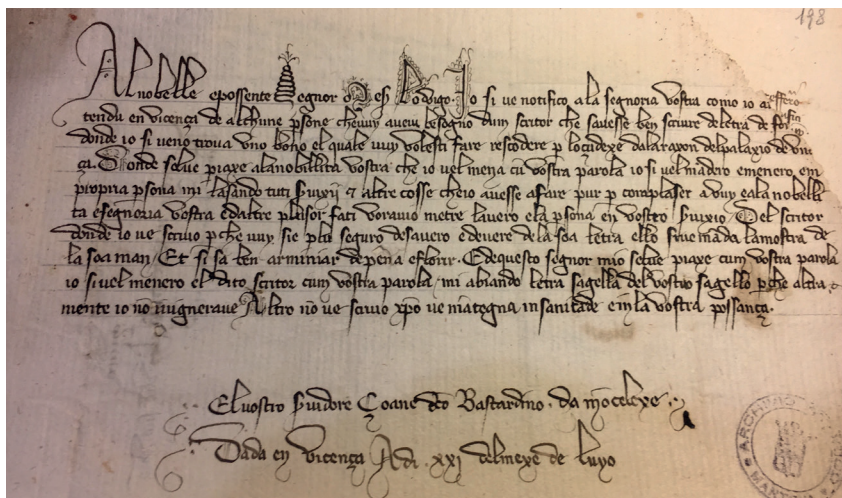 198
Al nobelle e possente segnor
Io si ve notifico a la segnoria vostra como io
tendu en vicença de alchune psone che vuy aveu besogno dun scritor che savesse ben scrivre de letra de
donde io si veno trova uno bono el quale vuy volesti fare rescodere p lo
ça. Donde se lve piaxe ala nobillita vostra che io vel mena cu vostra parola io si vel madero e menero em
propria psona mi lasando tuti srvixii & altre cosse che io avesse a fare pur p complaser a vuy e ala nobelli
ta e segnoria vostra e daltre plusor fati voravio metre lavero e la psona en vostro srvixio Del scritor
donde io ve scrivo pche vuy sie plu seguro de savero e de vere de la soa letra ello
la soa man. Et si sa ben arminiar de pena e florir. E de questo segnor mio se lve piaxe cum vostra parola
io si vel menero el dito scritor cum vostra parola, mi abiando letra sagella del vostro sagello pche altra
mente io no vignerave Altro no ve scrivo xpo ve mategna in sanitade e in la vostra possança.
El vostro srvidore Çoane dto Bastardino da
Dada en vicença Adi xxi del mexe de luyo